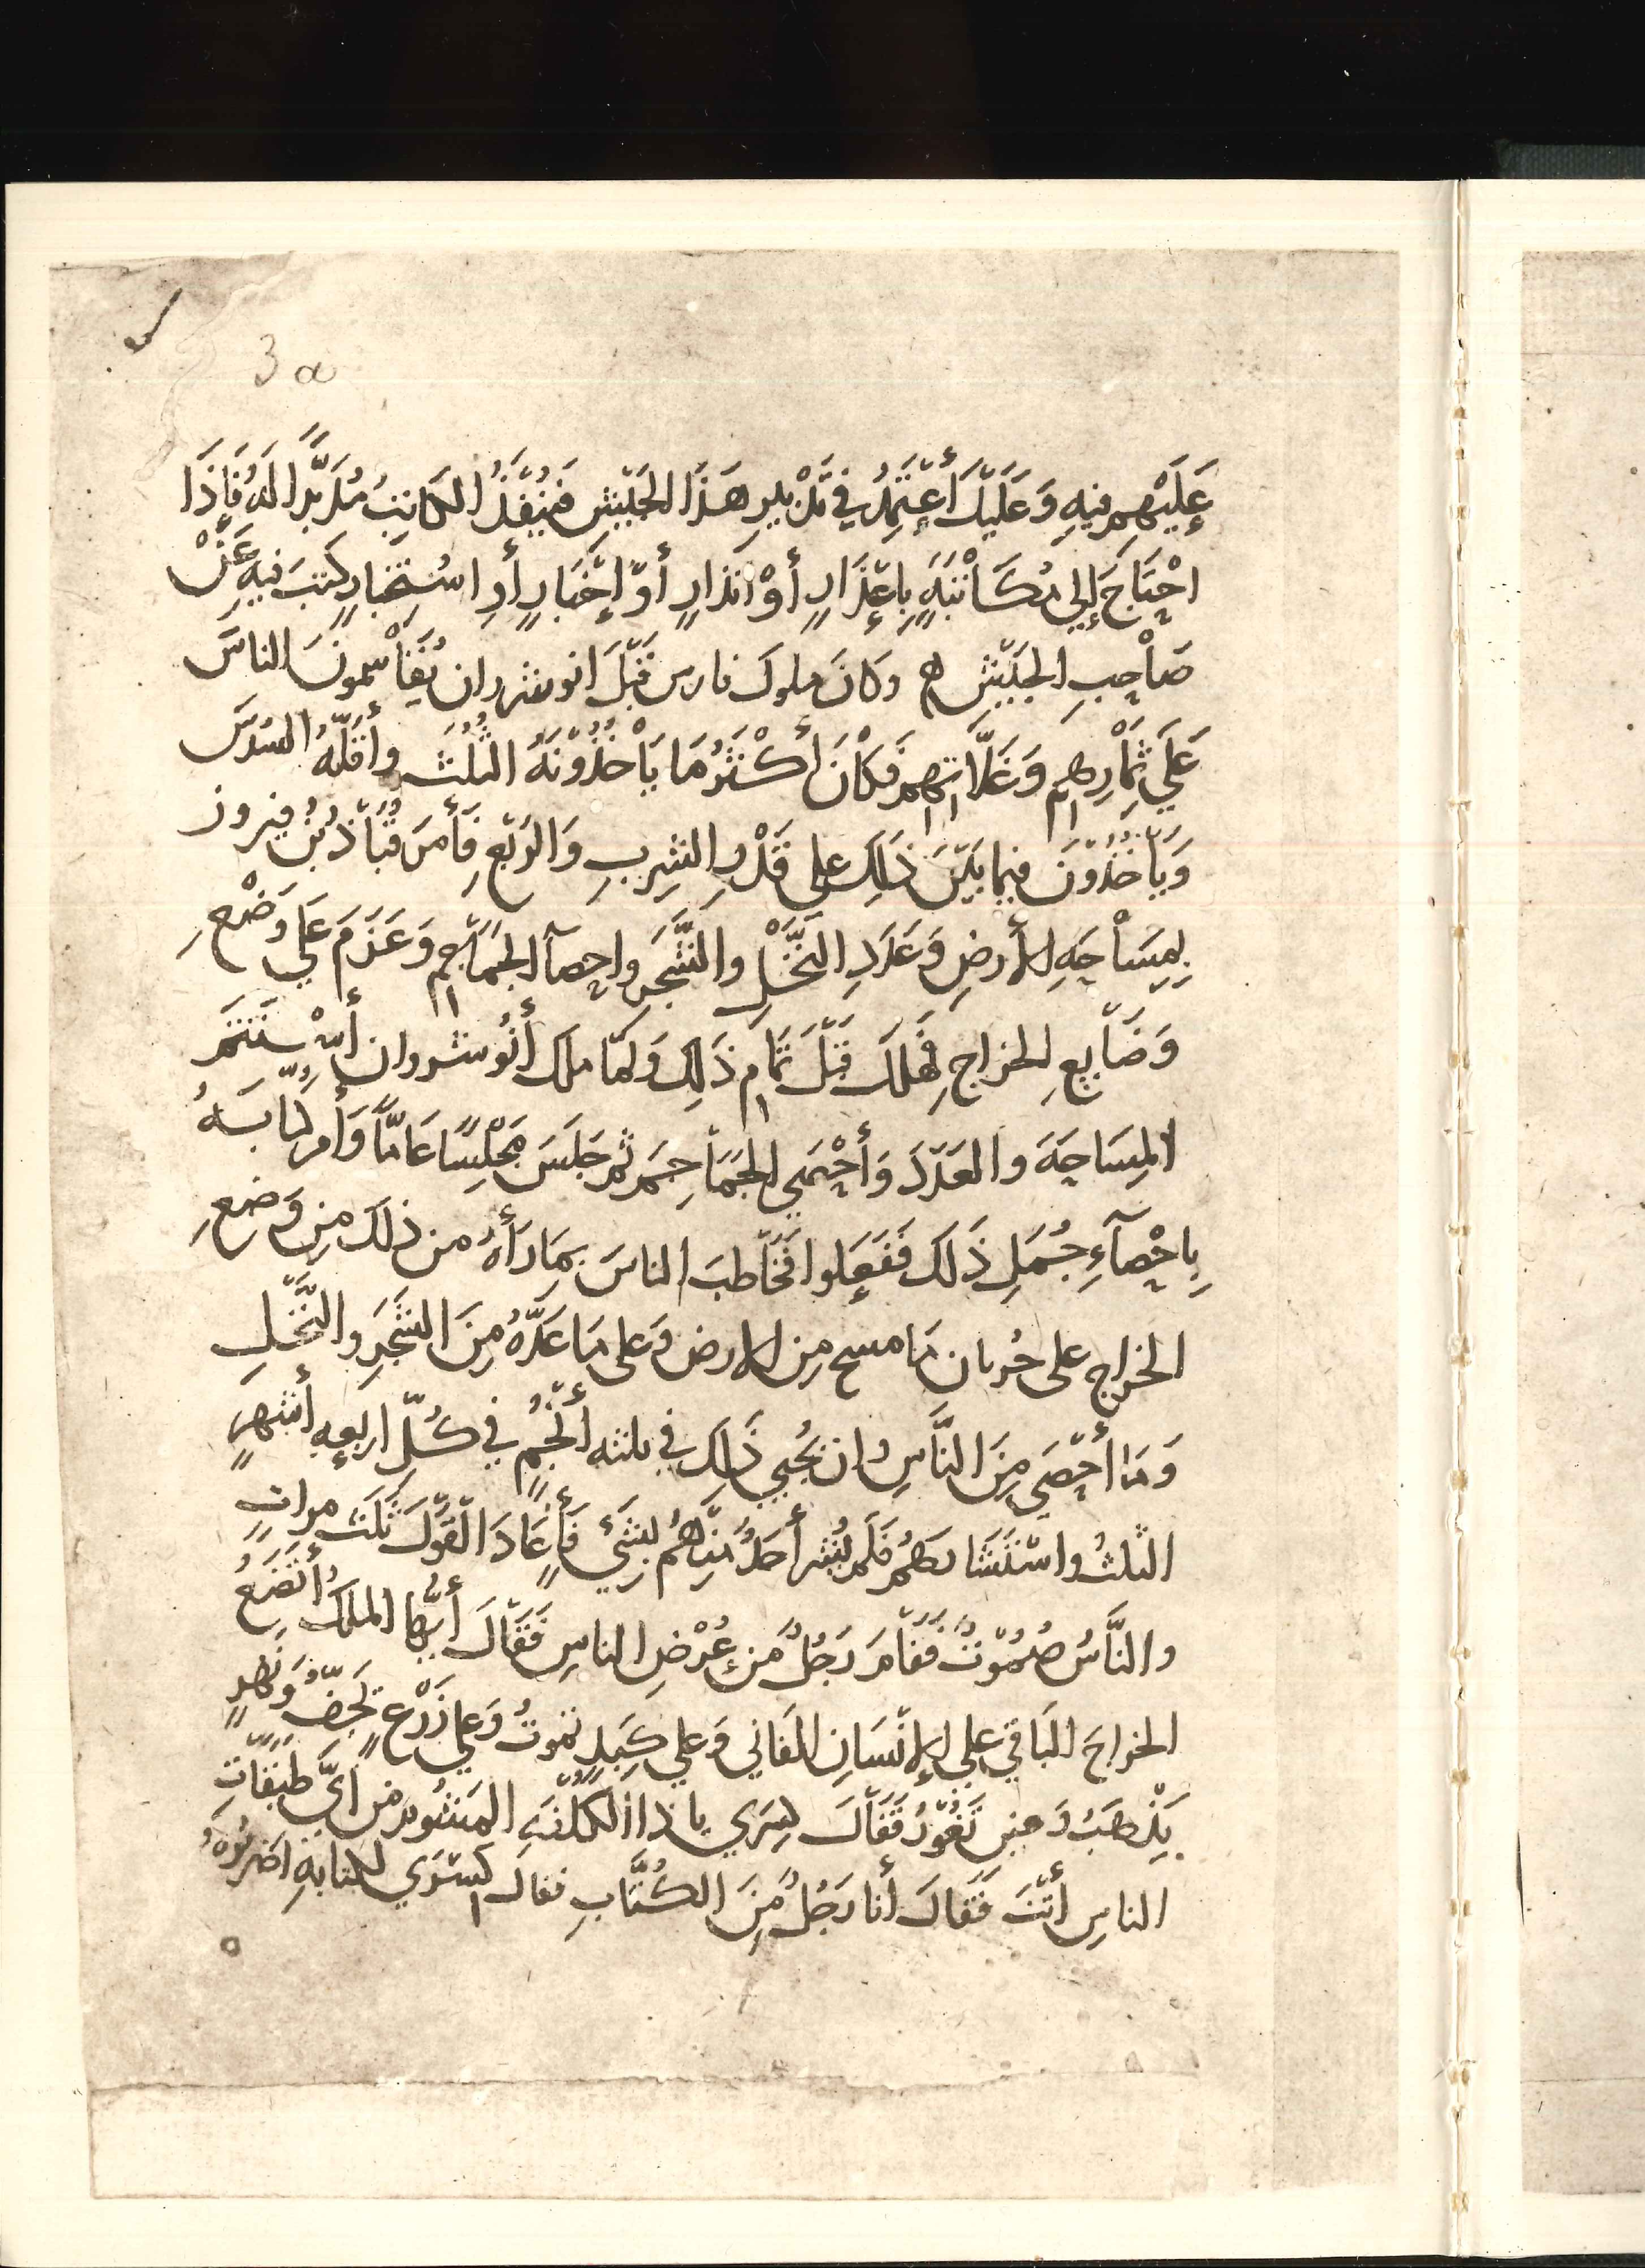 3a
عَلَيْهِم فِيهِ وَعَلَيْكَ أَعْتَمِدُ في تَدْبِيرِ هَذَا الجَيْشِ فَيَنْفُذُ الكَاتِبُ مُدَبِّرًا لَهُ فَإِذَا
احْتَاجَ إِلى مُكَاتَبَةٍ بِاعْذَارٍ أَوْ انذَارٍ أَوْ إِخْبَارٍ أَوِ اسْتِخْبَارٍ كتبَ فِيهِ عَنْ
صَاحِبِ الجَيْشِ ه وَكانَ ملوك فارس قَبْلَ انوشروان يُقَاسمونَ الناسَ
عَلَي ثِمَارِهِم وَغَلَّاتهِم فَكَانَ أَكْثَرُ مَا يَأْخُذُونَهُ الثُّلُثَ وأَقَلُّهُ السُّدسَ
وَيَأْخُذُونَ فيما بَيْنَ ذَلِكَ على قَدْرِ الشِّربِ وَالرَيْعِ فَأَمَرَ قُبَاذُ بْنُ فيروز
بِمِسَاحَةِ الأَرضِ وَعَدَدِ النَّخْلِ والشَّجَرِ واحصآ الجَمَاجِم وَعَزَمَ عَلي وَضْعِ
وَضَايِعِ الخراجِ فَهلَكَ قَبْلَ تَمَامِ ذَلِكَ وَلمّا ملك أَنُوشروان أَسْتَتَمَّ
المِسَاحَةَ والعَدَدَ وَأَحْصَي الجَمَاجِمَ ثم جَلَسَ مَجْلِسًا عَامًّا وَأَمرَ كتابَهُ
بِاحْصَآءِ جُمَلِ ذَلكَ فَفَعَلوا فَخَاطبَ الناسَ بِمَا رَأَهُ من ذلك مِن وَضعِ
الخراج على جُربان مَا مسح مِن الارض وَعلى مَا عَدَّهُ مِنَ الشَّجَرِ والنَّخْلِ
وَمَا أَحْصَى مِنَ النَّاسِ وان يُجْبي ذَلِكَ في ثلثه أَنْجُمٍ في كُلِّ اربعهِ أَشهرٍ
الثلثُ واسْتَشَارَهُم فَلَم يُشر أَحَدٌ مِنْهُم بشَيْءٍ فَأَعَادَ القَوْلَ ثَلَثَ مراتٍ
والنَّاسُ صُمُوتٌ فَقَامَ رَجُلٌ مِن عُرْضِ الناسِ فَقَالَ أَيُّهَا الملكُ أَتَضَعُ
الخراجَ البَاقي على الإِنْسَانِ الفَاني وَعلي كَبِدٍ تموتُ وَعلي زَرْعٍ يَجِفُّ وَنَهْرٍ
يَذْهَبُ وَعينٍ تَغُورُ فَقَالَ كسرَي يا ذا الكُلْفَةِ المَشْئوم مِن أَيِّ طبَقَاتِ
الناسِ أَنْتَ فَقَالَ أَنا رَجُلٌ مِنَ الكُتَّابِ فقال كسْرَي لكتابهِ اضربُوهُ